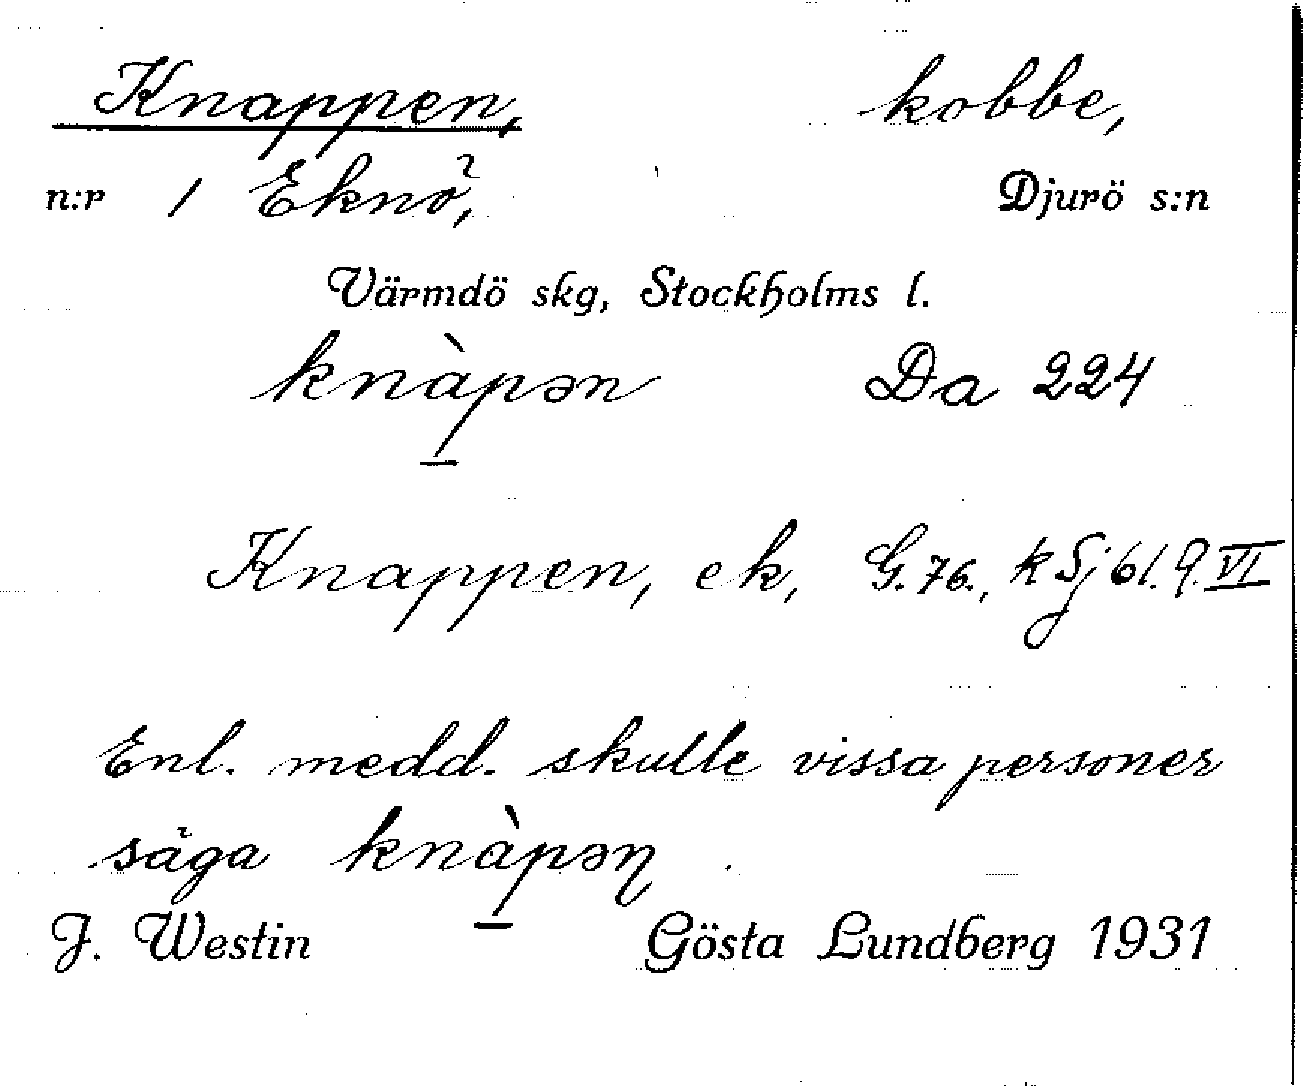 Knappen, kobbe,
n:r 1 Eknö, Djurö s:n
Värmdö skg, Stockholms l.
knàpən Da 224
Knappen, ek, G. 76., k Sj bl. 9. VI
Enl. medd. skulle vissa personer
säga knàpəŋ.
J. Westin Gösta Lundberg 1931